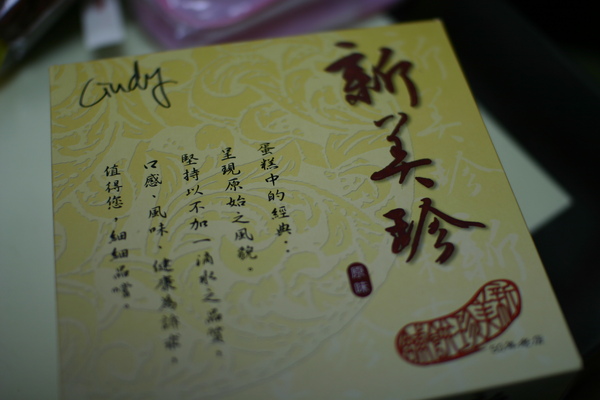 Cindy
新美珍
原味
蛋糕中的經典：
呈現原始之風貌。
堅持以不加一滴水之品質。
口感、風味、健康為訴求。
值得您，細細品嚐。
新美珍餅舖
50年老店